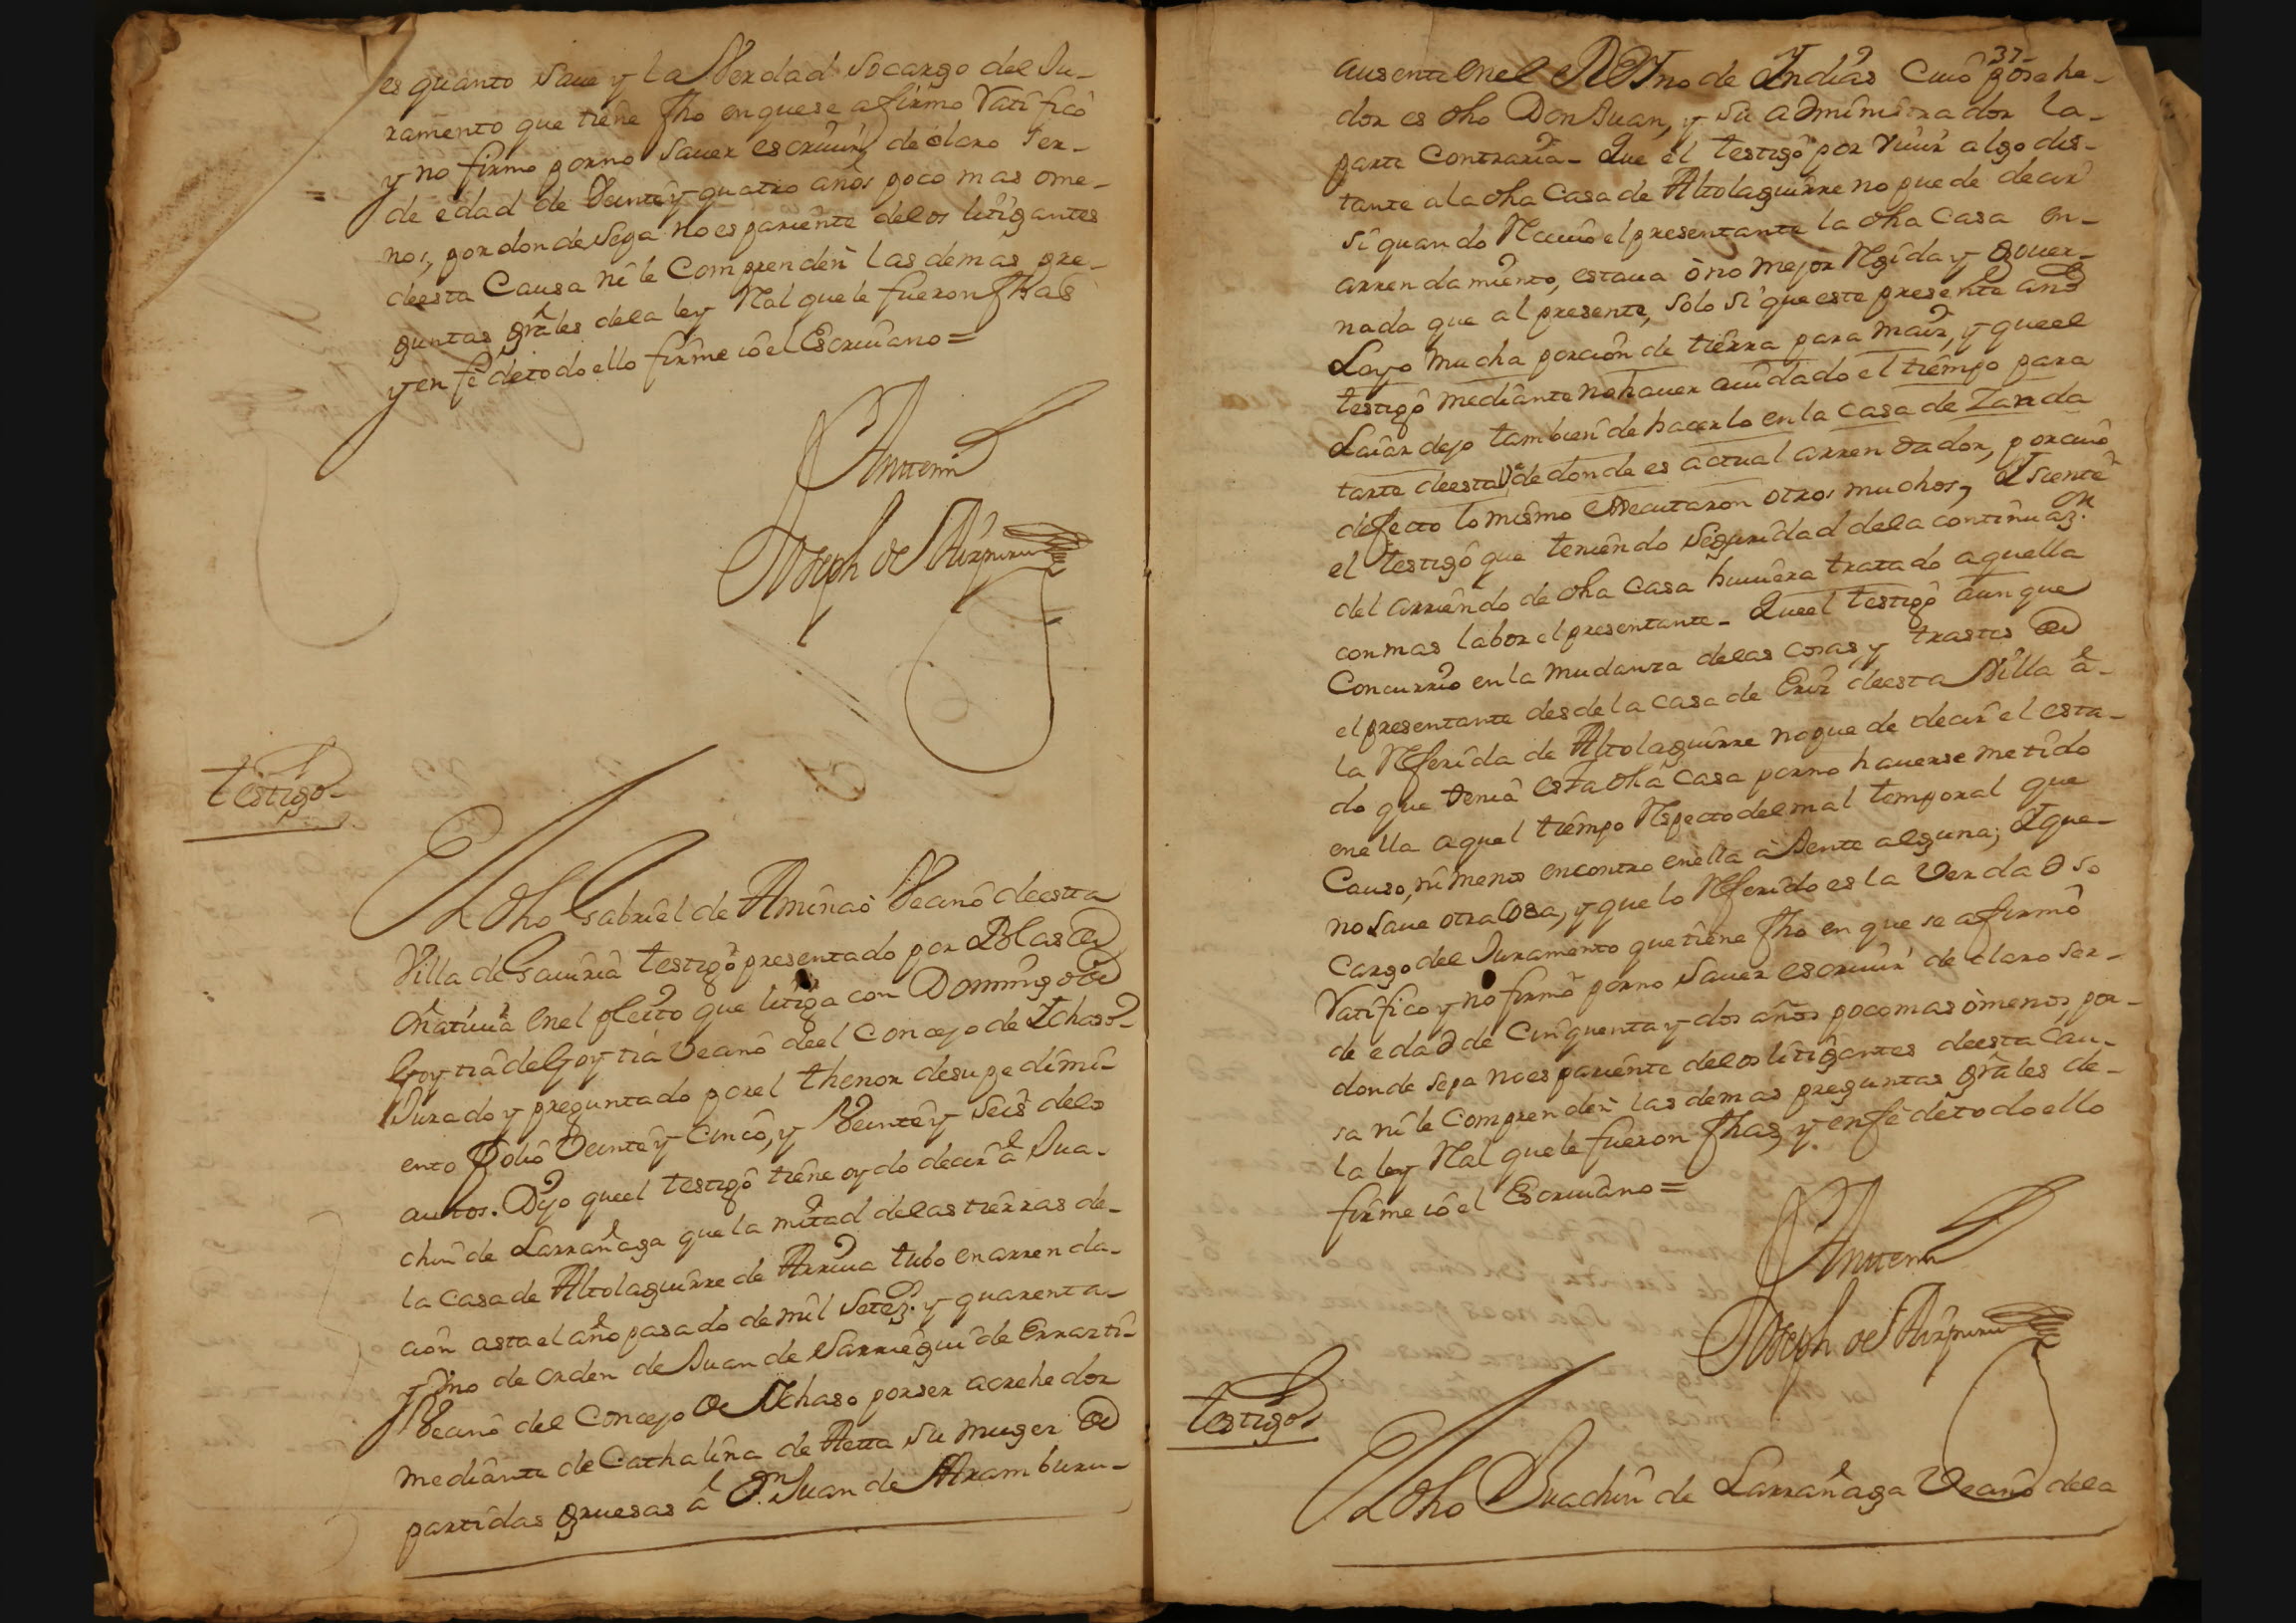 es quanto save y la Verdad socargo del Ju-
ramento que tiene fho enquese afirmo Ratificò
y no firmo porno saver escrivir, declaro ser-
de edad de Veinte y quatro años poco mas ome-
nos, por donde sepa no es pariente delos litigantes
deesta Causa ni le Comprenden las demas pre-
guntas grãles dela ley Ral que le fueron fhas
y en fè detodo ello firme iò el Escrivano =
Antemi
Joseph de Aizpuru
testigo
El dho Gabriel de Aminas Vecino deesta
Villa de Gaviria testigo presentado por Blas de
Oñativia enel pleito que litiga con Domingo de
Goytia de Goytia Vecino de el Concejo de Ichaso
Jurado y preguntado por el thenor desu pedimi-
ento folio Veinte y Cinco, y Veinte y seis delos
autos. Dijo que el testigo tiene oydo decir à Jua-
chin de Larrañaga que la mitad delas tierras de-
la Casa de Altolaguirre de Arriva tubo en arrenda-
cion asta el año pasado de mil Setez.s y quarenta-
y Uno de orden de Juan de Sarriegui de Errarti-
Vecino del Concejo de Ichaso por ser acrehedor
mediante de Cathalina de Aetta su muger de
partidas gruesas à D.n Juan de Aramburu-
37
ausente enel Reyno de Indias Cuio posehe-
dor es dho Don Juan, y su administrador la-
parte Contraria - Que el testigo por Vivir algo dis-
tante ala dha Casa de Altolaguirre no puede decir
si quando Recivio el presentante la dha Casa en-
arrendamiento, estava òno mejor Regida y gover-
nada que al presente, solo si que este presente año
Layo mucha porcion de tierra para maiz, y queel
testigo mediante no haver aiudado el tiempo para
Laiar dejo tambien de hacerlo en la Casa de Zavda
tarte deesta V.a de donde es actual arrendador, por cuio
defecto lo mismo executaron otros muchos, Y siente
el testigo que teniendo seguridad dela continuaz.on
del arriendo de dha Casa huviera tratado aquella
con mas labor el presentante - Queel testigo aunque
Concurrio en la mudanza delas cosas y trastes de
el presentante desde la Casa de Eriz deesta Villa à-
la Referida de Altolaguirre no puede decir el esta-
do que tenia esta dha Casa porno haverse metido
enella aquel tiempo Respecto del mal temporal que
Causo, ni menos encontro enella à Jente alguna; Y que-
no save otra Cosa, y que lo Referido es la Verdad so
cargo del Juramento que tiene fho en que se afirmò
Ratifico y no firmò porno saver escrivir declaro ser-
de edad de Cinquenta y dos años poco mas òmenos, por-
donde sepa no es pariente delos litigantes deesta Cau-
sa ni le Comprenden las demas preguntas grãles de-
la ley Ral que le fueron fhas, y en fè detodo ello
firme iò el Escrivano =
Antemi
Joseph de Aizpuru
testigo
El dho Juachin de Larrañaga Vecino dela